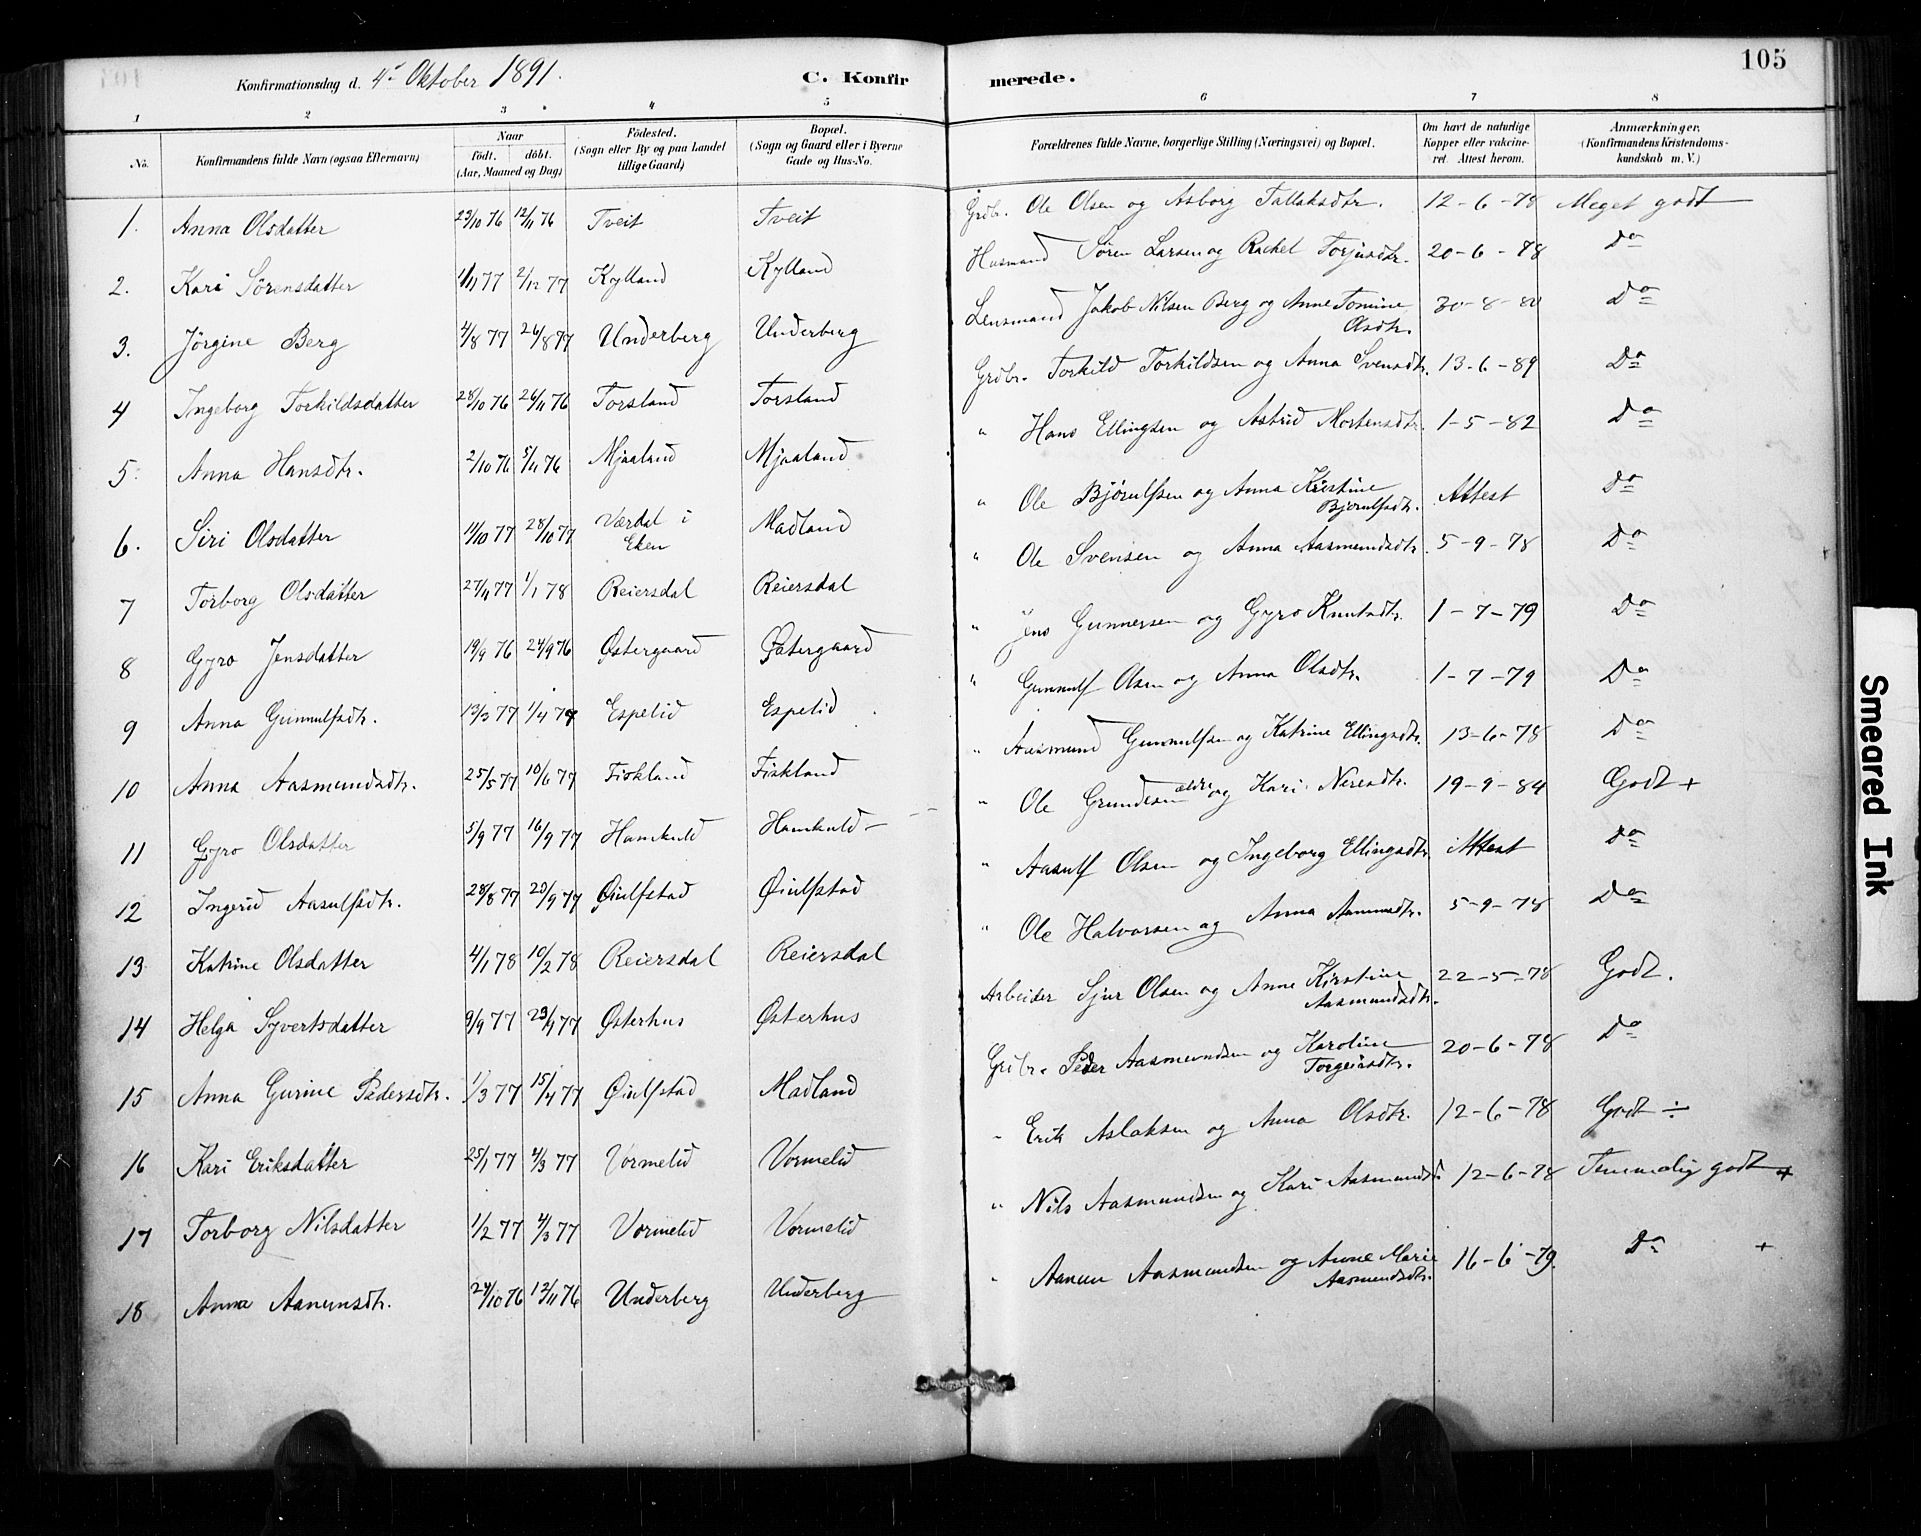 105
Konfirmationsdag d. 4de Oktober 1891.
C. Konfirmerede.
1 2 3 4 5 6 7 8
No. Konfirmandens fulde Navn (ogsaa Efternavn) Naar født. døbt. (Aar, Maaned og Dag) Fødested. (Sogn eller By og paa Landet tillige Gaard) Bopæl. (Sogn og Gaard eller i Byerne Gade og Hus-No. Forældrenes fulde Navne, borgerlige Stilling (Næringsvei) og Bopæl. Om havt de naturlige Kopper eller vakcineret. Attest herom. Anmærkninger. (Konfirmandens Kristendomskundskab m. V.)
1. Anna Olsdatter 23/10 76 12/11 76 Tveit Tveit Grdbr. Ole Olsen og Asborg Tallaksdtr. 12-6-78 Meget godt
2. Kari Sørensdatter 1/11 77 2/12 77 Kylland Kylland Husmand Søren Larsen og Rachel Torjusdtr. 20-6-78 Do
3. Jørgine Berg 4/8 77 26/8 77 Underberg Underberg Lensmand Jakob Nilsen Berg og Anne Tomine Olsdtr. 30-8-80 Do
4 Ingeborg Torkildsdatter 28/10 76 26/11 76 Torsland Torsland Grdbr. Torkild Torkildsen og Anna Svensdtr. 13-6-89 Do
5. Anna Hansdtr. 2/10 76 5/11 76 Mjaaland Mjaaland " Hans Ellingsen og Astrid Mortensdtr. 1-5-82 Do
6. Siri Olsdatter 11/10 77 28/10 77 Værdal i Eken Madland " Ole Bjørulfsen og Anna Kristine Bjørulfsdtr. Attest Do
7 Torborg Olsdatter 27/11 77 1/1 78 Reiersdal Reiersdal " Ole Svensen og Anna Aasmundsdtr. 5-9-78 Do
8 Gyro Jensdatter 19/9 76 24/9 76 Østergaard Østergaard " Jens Gunnersen og Gyro Knutsdtr. 1-7-79 Do
9 Anna Gunnulfsdtr. 13/3 77 1/4 77 Espelid Espelid " Gunnulf Olsen og Anna Olsdtr. 1-7-79 Do
10 Anna Aasmundsdtr. 25/5 77 10/6 77 Fiskland Fiskland " Aasmund Gunnulfsen og Katrine Ellingsdtr. 13-6-78 Do
11 Gyro Olsdatter 5/9 77 16/9 77 Hamkuld Hamkuld " Ole Grundesen ældre og Kari Neresdtr. 19-9-84 Godt +
12 Ingerid Aasulfsdtr. 28/8 77 23/9 77 Øiulfstad Øiulfstad " Aasulf Olsen og Ingeborg Ellingsdtr. Attest Do
13 Katrine Olsdatter 4/1 78 10/2 78 Reiersdal Reiersdal " Ole Halvorsen og Anna Aanunsdtr. 5-9-78 Do
14 Helga Syvertsdatter 9/9 77 23/9 77 Østerhus Østerhus Arbeider Sjur Olsen og Anne Kirstine Aasmundsdtr. 22-5-78 Godt.
15 Anna Gurine Pedersdtr. 1/3 77 15/4 77 Øiulfstad Madland Grdbr. Peder Aasmundsen og Karoline Torgeirsdtr. 20-6-78 Do
16 Kari Eriksdatter 25/1 77 4/3 77 Vormelid Vormelid " Erik Aslaksen og Anna Olsdtr. 12-6-78 Godt ÷
17 Torborg Nilsdatter 1/2 77 4/3 77 Vormelid Vormelid " Nils Aasmundsen og Kari Aasmundsdtr 12-6-78 Temmelig godt +
18 Anna Aanunsdtr. 24/10 76 13/11 76 Underberg Underberg " Aanun Aasmundsen og Anne Marie Aasmundsdtr. 16-6-79. Do +
Smeared Ink